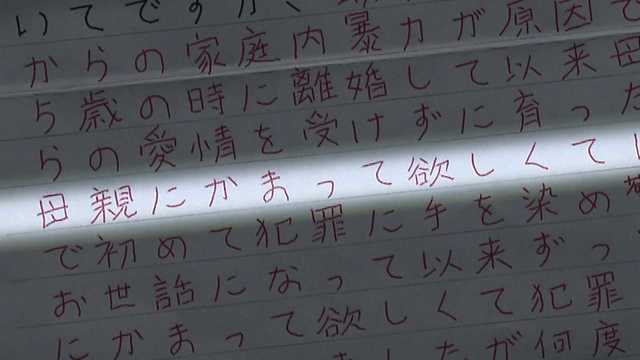 いてですが、
からの家庭内暴力が原因で
5歳の時に離婚して以来母
らの愛情を受けずに育った
母親にかまって欲しくて
で初めて犯罪に手を染め
お世話になって以来ずっ
にかまって欲しくて犯罪
ましたが何度